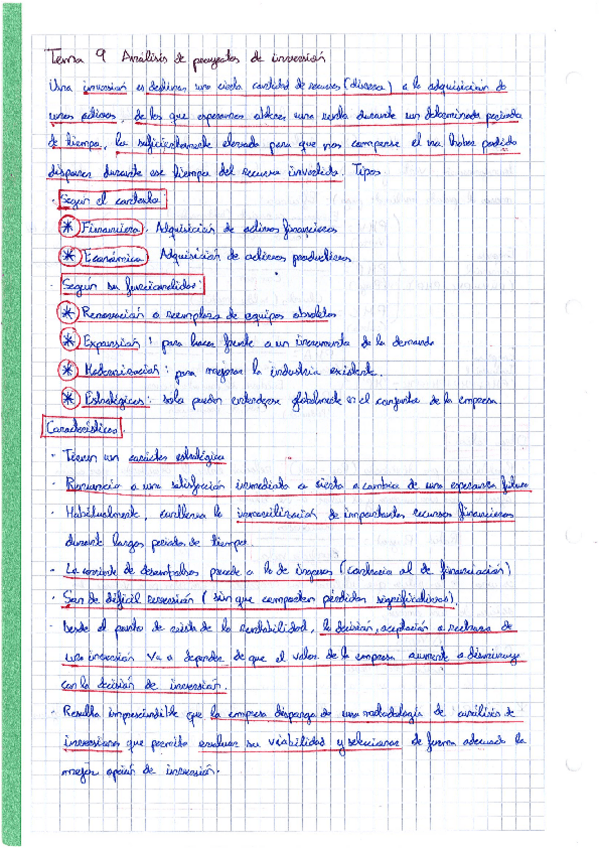 Tema 9 Análisis de proyectos de inversión
Una inversión es destinar una cierta cantidad de recursos (dinero) a la adquisición de
unos activos, de los que esperamos obtener una renta durante un determinado periodo
de tiempo, lo suficientemente elevada para que nos compense el no haber podido
disponer durante ese tiempo del recurso invertido. Tipos
· Según el contexto:
* Financiera. Adquisición de activos financieros
* Económica Adquisición de activos productivos
· Según su funcionalidad:
* Renovación o reemplazo de equipos obsoletos
* Expansión: para hacer frente a un incremento de la demanda
* Modernización: para mejorar la industria existente.
* Estratégicas: solo pueden entenderse globalmente en el conjunto de la empresa
Características.
- Tienen un carácter estratégico
- Renuncia a una satisfacción inmediata a cierta a cambio de una esperanza futura
- Habitualmente, conlleva la inmovilización de importantes recursos financieros
durante largos periodos de tiempo.
- La corriente de desembolsos precede a la de ingresos (contraria al de financiación)
- Son de difícil reversión (sin que comporten pérdidas significativas).
- Desde el punto de vista de la rentabilidad, la decisión, aceptación o rechazo de
una inversión va a depender de que el valor de la empresa aumente o disminuya
con la decisión de inversión.
- Resulta imprescindible que la empresa disponga de una metodología de análisis de
inversiones que permita evaluar su viabilidad y seleccionar de forma adecuada la
mejor opción de inversión.